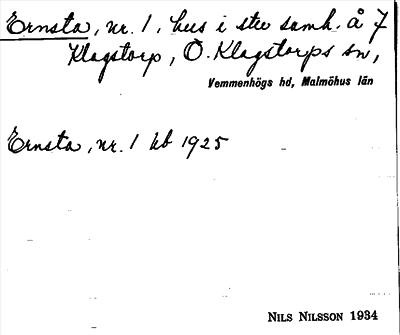 Ernsta, nr. 1, hus i stv samh. å 7
Klagstorp, Ö. Klagstorps sn,
Vemmenhögs hd, Malmöhus län
Ernsta, nr. 1 kb 1925
NILS NILSSON 1934